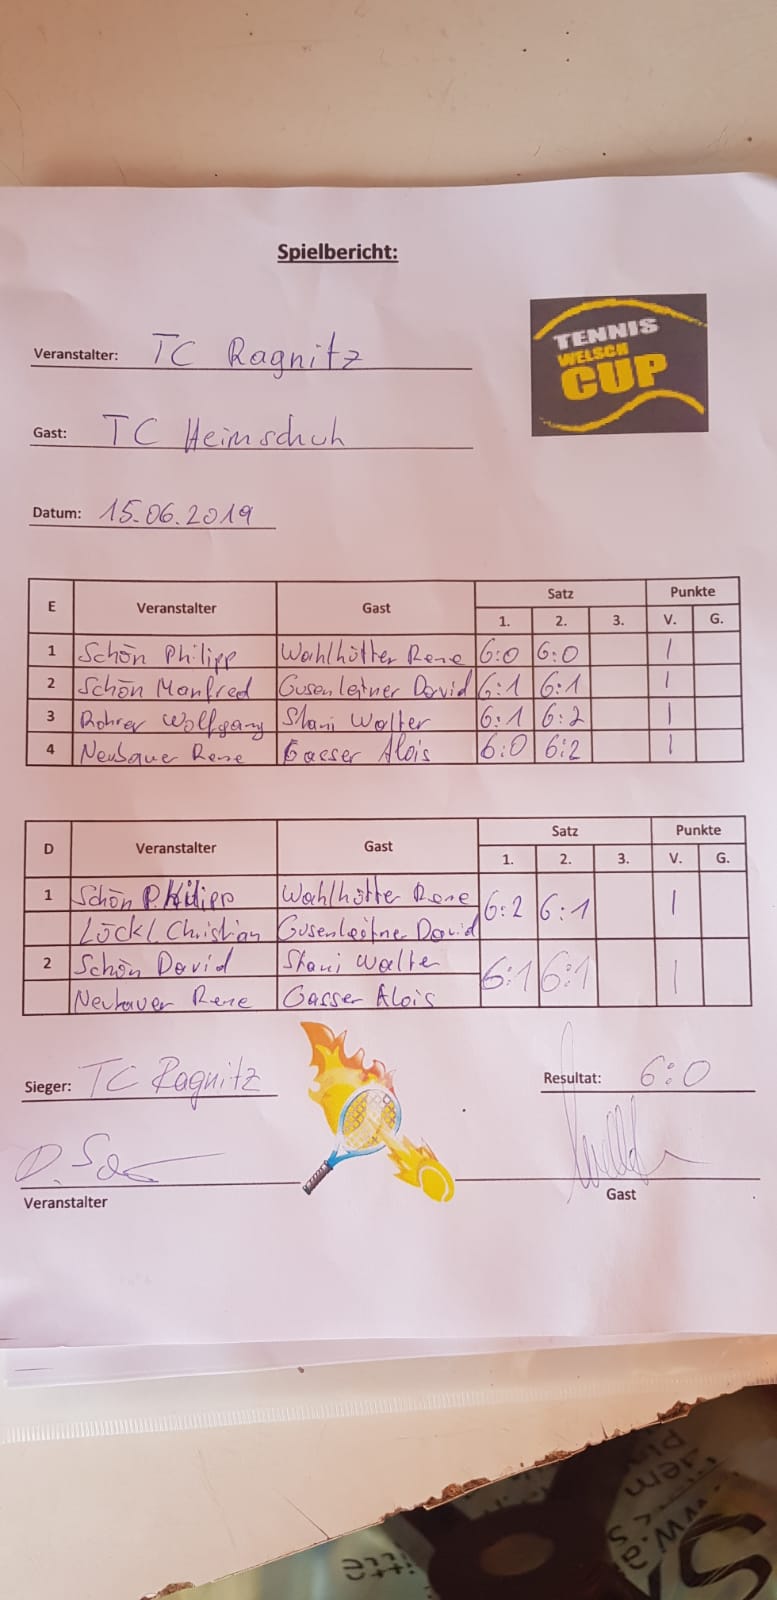 Spielbericht:
TENNIS
WELSCH
CUP
Veranstalter: TC Ragnitz
Gast: TC Heimschuh
Datum: 15.06.2019
E Veranstalter Gast Satz Punkte
1. 2. 3. V. G.
1 Schön Philipp Wahlhütter Rene 6:0 6:0 1
2 Schön Manfred Gusenleitner David 6:1 6:1 1
3 Rohrer Wolfgang Stani Walter 6:1 6:2 1
4 Neubauer Rene Gasser Alois 6:0 6:2 1
D Veranstalter Gast Satz Punkte
1. 2. 3. V. G.
1 Schön Philipp Wahlhütter Rene 6:2 6:1 1
Löckl Christian Gusenleitner David
2 Schön David Stani Walter 6:1 6:1 1
Neubauer Rene Gasser Alois
Sieger: TC Ragnitz Resultat: 6:0
Veranstalter Gast